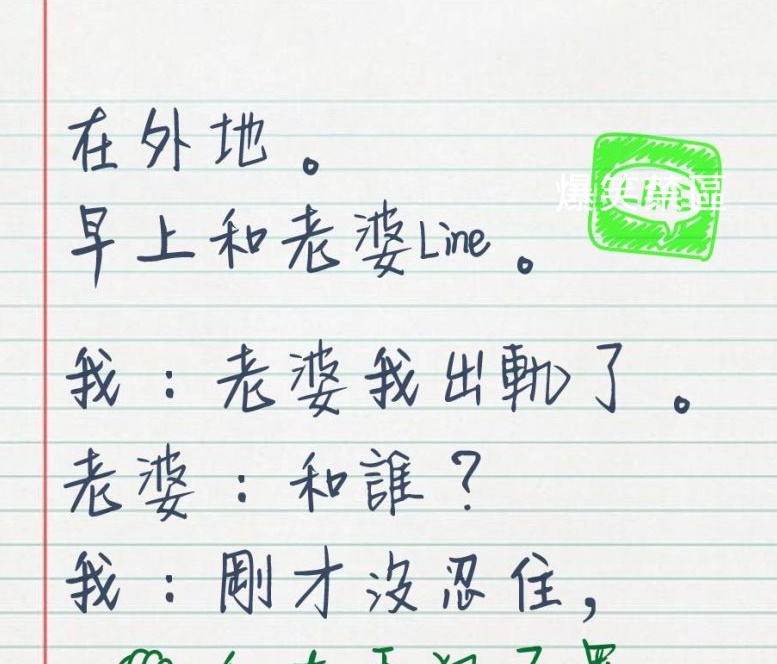 在外地。
早上和老婆Line。
爆笑禁區
我：老婆我出軌了。
老婆：和誰？
我：剛才沒忍住，